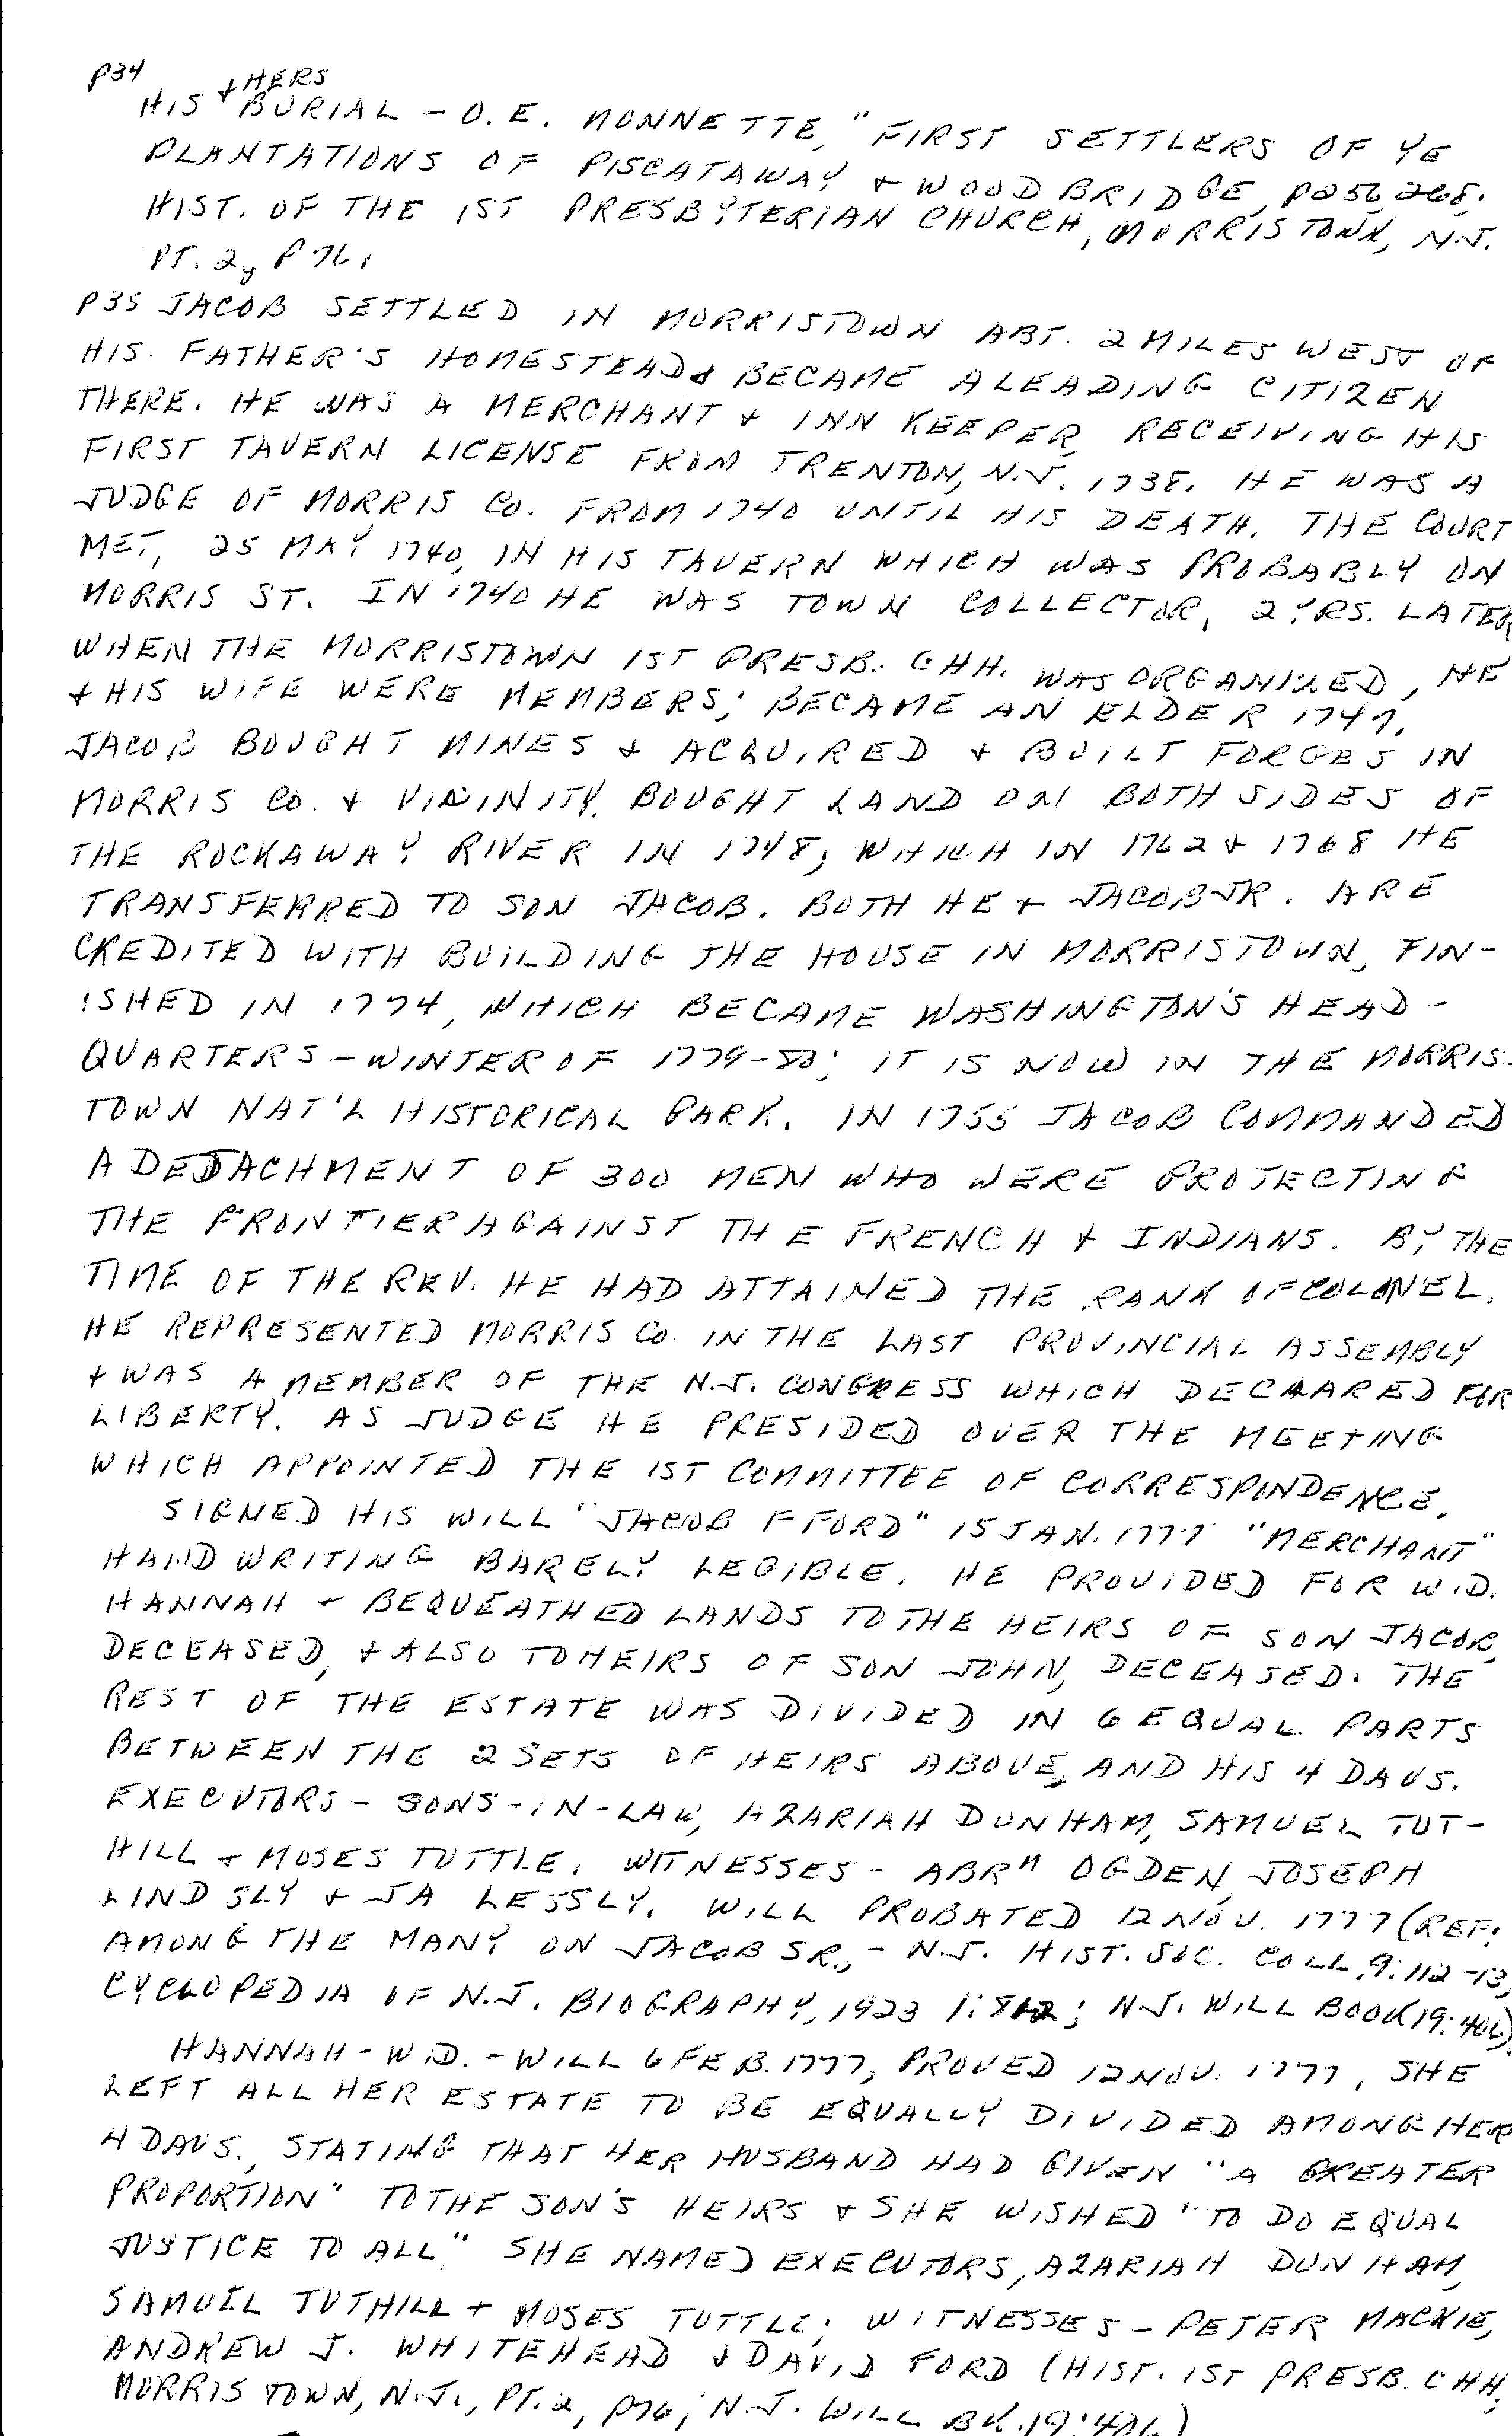 P34
HIS + HERS BURIAL - O.E. MONNETTE, "FIRST SETTLERS OF YE
PLANTATIONS OF PISCATAWAY + WOODBRIDGE, P256, 268;
HIST. OF THE 1ST PRESBYTERIAN CHURCH, MORRISTOWN, N.J.
PT. 2, P 76.
P35 JACOB SETTLED IN MORRISTOWN ABT. 2 MILES WEST OF
HIS FATHER'S HOMESTEAD & BECAME A LEADING CITIZEN
THERE. HE WAS A MERCHANT + INN KEEPER, RECEIVING HIS
FIRST TAVERN LICENSE FROM TRENTON, N.J. 1738. HE WAS A
JUDGE OF MORRIS CO. FROM 1740 UNTIL HIS DEATH. THE COURT
MET, 25 MAY 1740, IN HIS TAVERN WHICH WAS PROBABLY ON
MORRIS ST. IN 1740 HE WAS TOWN COLLECTOR, 2 YRS. LATER
WHEN THE MORRISTOWN 1ST PRESB. CHH. WAS ORGANIZED, HE
+ HIS WIFE WERE MEMBERS; BECAME AN ELDER 1747.
JACOB BOUGHT MINES + ACQUIRED + BUILT FORGES IN
MORRIS CO. + VICINITY. BOUGHT LAND ON BOTH SIDES OF
THE ROCKAWAY RIVER IN 1748; WHICH IN 1762 + 1768 HE
TRANSFERRED TO SON JACOB. BOTH HE + JACOB JR. ARE
CREDITED WITH BUILDING THE HOUSE IN MORRISTOWN, FIN-
ISHED IN 1774, WHICH BECAME WASHINGTON'S HEAD-
QUARTERS - WINTER OF 1779-80; IT IS NOW IN THE MORRIS-
TOWN NAT'L HISTORICAL PARK. IN 1755 JACOB COMMANDED
A DETACHMENT OF 300 MEN WHO WERE PROTECTING
THE FRONTIER AGAINST THE FRENCH + INDIANS. BY THE
TIME OF THE REV. HE HAD ATTAINED THE RANK OF COLONEL.
HE REPRESENTED MORRIS CO. IN THE LAST PROVINCIAL ASSEMBLY
+ WAS A MEMBER OF THE N.J. CONGRESS WHICH DECLARED FOR
LIBERTY. AS JUDGE HE PRESIDED OVER THE MEETING
WHICH APPOINTED THE 1ST COMMITTEE OF CORRESPONDENCE.
SIGNED HIS WILL "JACOB F FORD" 15 JAN. 1777 "MERCHANT"
HANDWRITING BARELY LEGIBLE. HE PROVIDED FOR WID.
HANNAH + BEQUEATHED LANDS TO THE HEIRS OF SON JACOB,
DECEASED, + ALSO TO HEIRS OF SON JOHN, DECEASED. THE
REST OF THE ESTATE WAS DIVIDED IN 6 EQUAL PARTS
BETWEEN THE 2 SETS OF HEIRS ABOVE, AND HIS 4 DAUS.
EXECUTORS - SONS-IN-LAW, AZARIAH DUNHAM, SAMUEL TUT-
HILL + MOSES TUTTLE. WITNESSES - ABRM OGDEN, JOSEPH
LINDSLY + JA LESSLY. WILL PROBATED 12 NOV. 1777 (REF:
AMONG THE MANY ON JACOB SR., - N.J. HIST. SOC. COLL. 9:112-13,
CYCLOPEDIA OF N.J. BIOGRAPHY, 1923 1:812; N.J. WILL BOOK 19:406).
HANNAH - WID. - WILL 6 FEB. 1777, PROVED 12 NOV. 1777, SHE
LEFT ALL HER ESTATE TO BE EQUALLY DIVIDED AMONG HER
4 DAUS., STATING THAT HER HUSBAND HAD GIVEN "A GREATER
PROPORTION" TO THE SON'S HEIRS + SHE WISHED "TO DO EQUAL
JUSTICE TO ALL" SHE NAMED EXECUTORS, AZARIAH DUNHAM,
SAMUEL TUTHILL + MOSES TUTTLE; WITNESSES - PETER MACKIE,
ANDREW J. WHITEHEAD & DAVID FORD (HIST. 1ST PRESB. CHH,
MORRISTOWN, N.J., PT. 2, P76; N.J. WILL BK. 19:406)